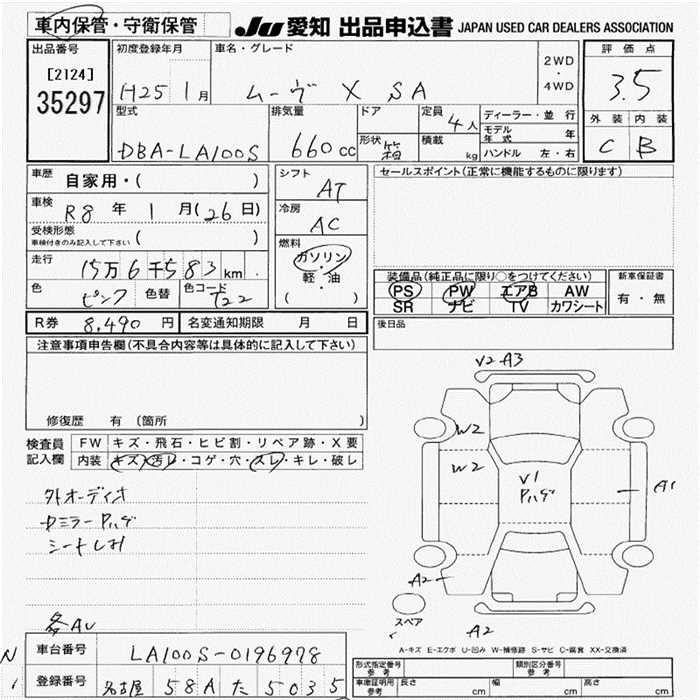 車内保管・守衛保管
JU 愛知 出品申込書 JAPAN USED CAR DEALERS ASSOCIATION
出品番号
[2124]
35297
初度登録年月
H25 1月
車名・グレード
ムーヴ X SA
2WD
・
4WD
評価点
3.5
外装 内装
C B
型式
DBA-LA100S
排気量
660cc
ドア
形状 箱
定員 4人
積載 kg
ディーラー・並行
モデル年式 年
ハンドル 左・右
車歴
自家用・( )
車検
R8年 1月(26日)
受検形態
車検付きのみ記入して下さい ( )
走行
15万6千583km
色 ピンク 色替 色コード T22
シフト
AT
冷房
AC
燃料
ガソリン
・
軽・油
( )
セールスポイント(正常に機能するものに限ります)
装備品(純正品に限り○をつけてください)
PS PW エアB AW
SR ナビ TV カワシート
新車保証書
有・無
R券 8,490円 名変通知期限 月 日
後日品
注意事項申告欄(不具合内容等は具体的に記入して下さい)
修復歴 有 〔箇所 〕
検査員記入欄
FW キズ・飛石・ヒビ割・リペア跡・X要
内装 キズ・汚レ・コゲ・穴・スレ・キレ・破レ
外オーディオ
カミラーPハゲ
各AU
V2 A3
W2
W2
V1
Pハゲ
A1
A2
A2
スペア
A-キズ E-エクボ U-凹み W-補修跡 S-サビ C-腐食 XX-交換済
車台番号 LA100S-0196978
登録番号 名古屋 58A た 5035
N
1
形式指定番号 参考
類別区分番号 参考
車庫証明用 参考 長さ cm 幅 cm 高さ cm